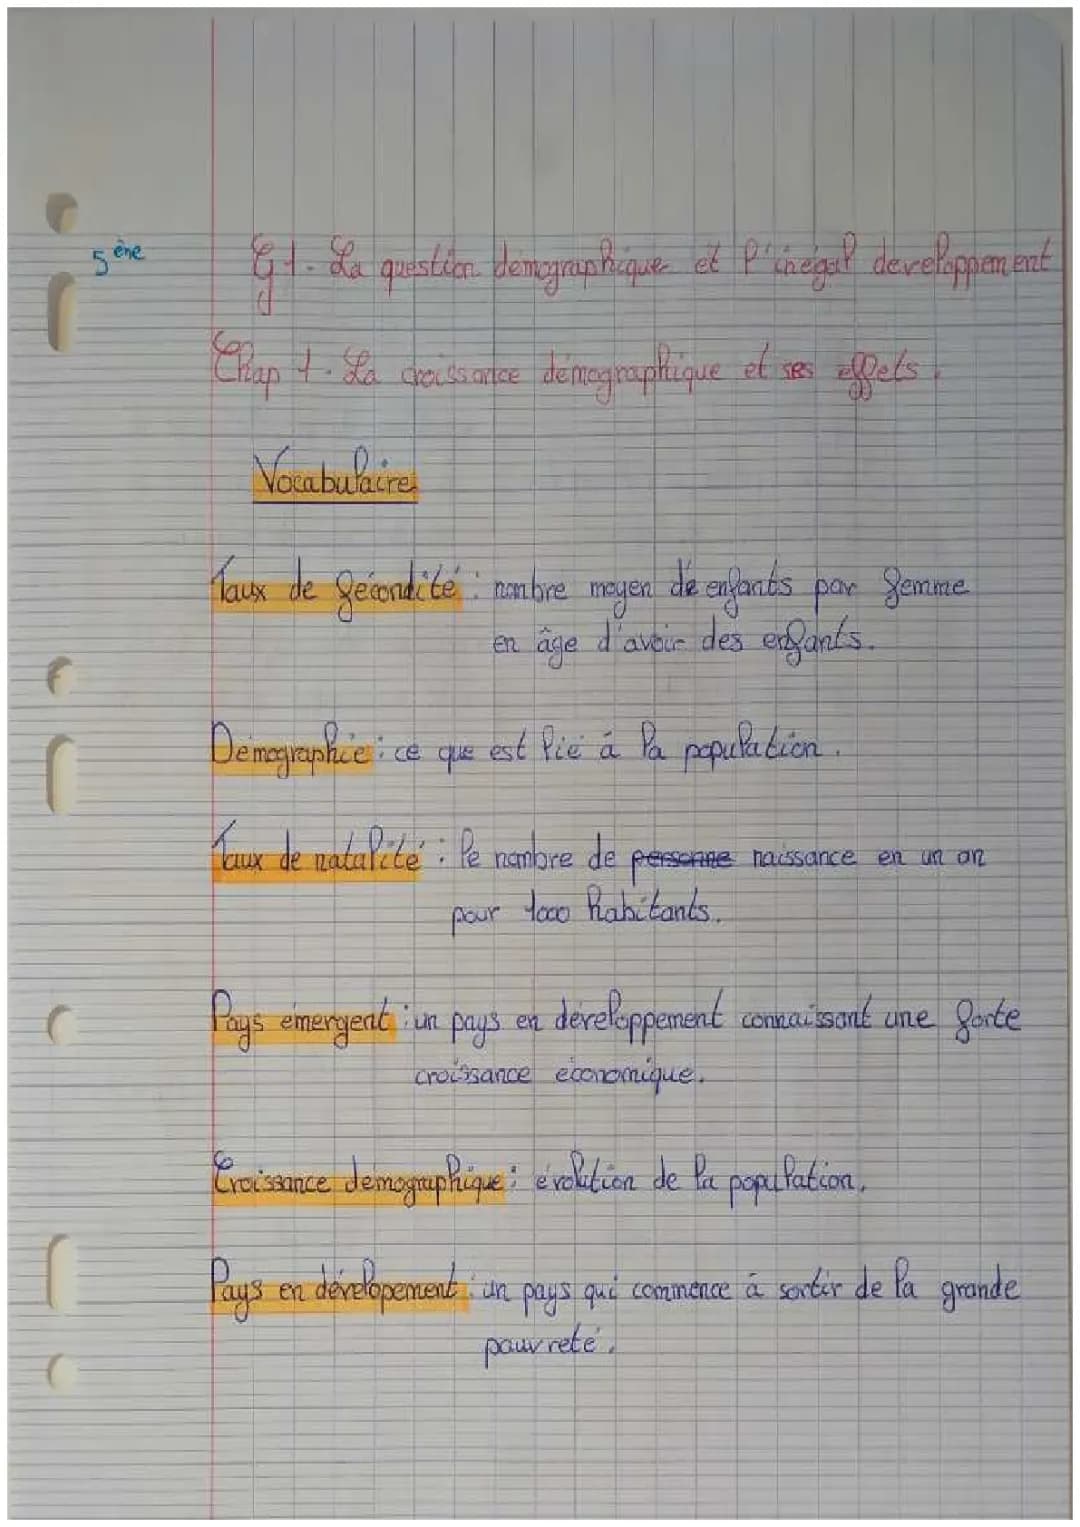 5 ème
G1. La question démographique et l'inégal developpement
Chap 1. La croissance démographique et ses effets.
Vocabulaire
Taux de fécondité : nombre moyen de enfants par femme
en âge d'avoir des enfants.
Démographie : ce que est lié à la population.
Taux de natalité : le nombre de personne naissance en un an
pour 1000 habitants.
Pays émergent : un pays en développement connaissant une forte
croissance économique.
Croissance démographique : évolution de la population.
Pays en dévelopement : un pays qui commence à sortir de la grande
pauvreté.